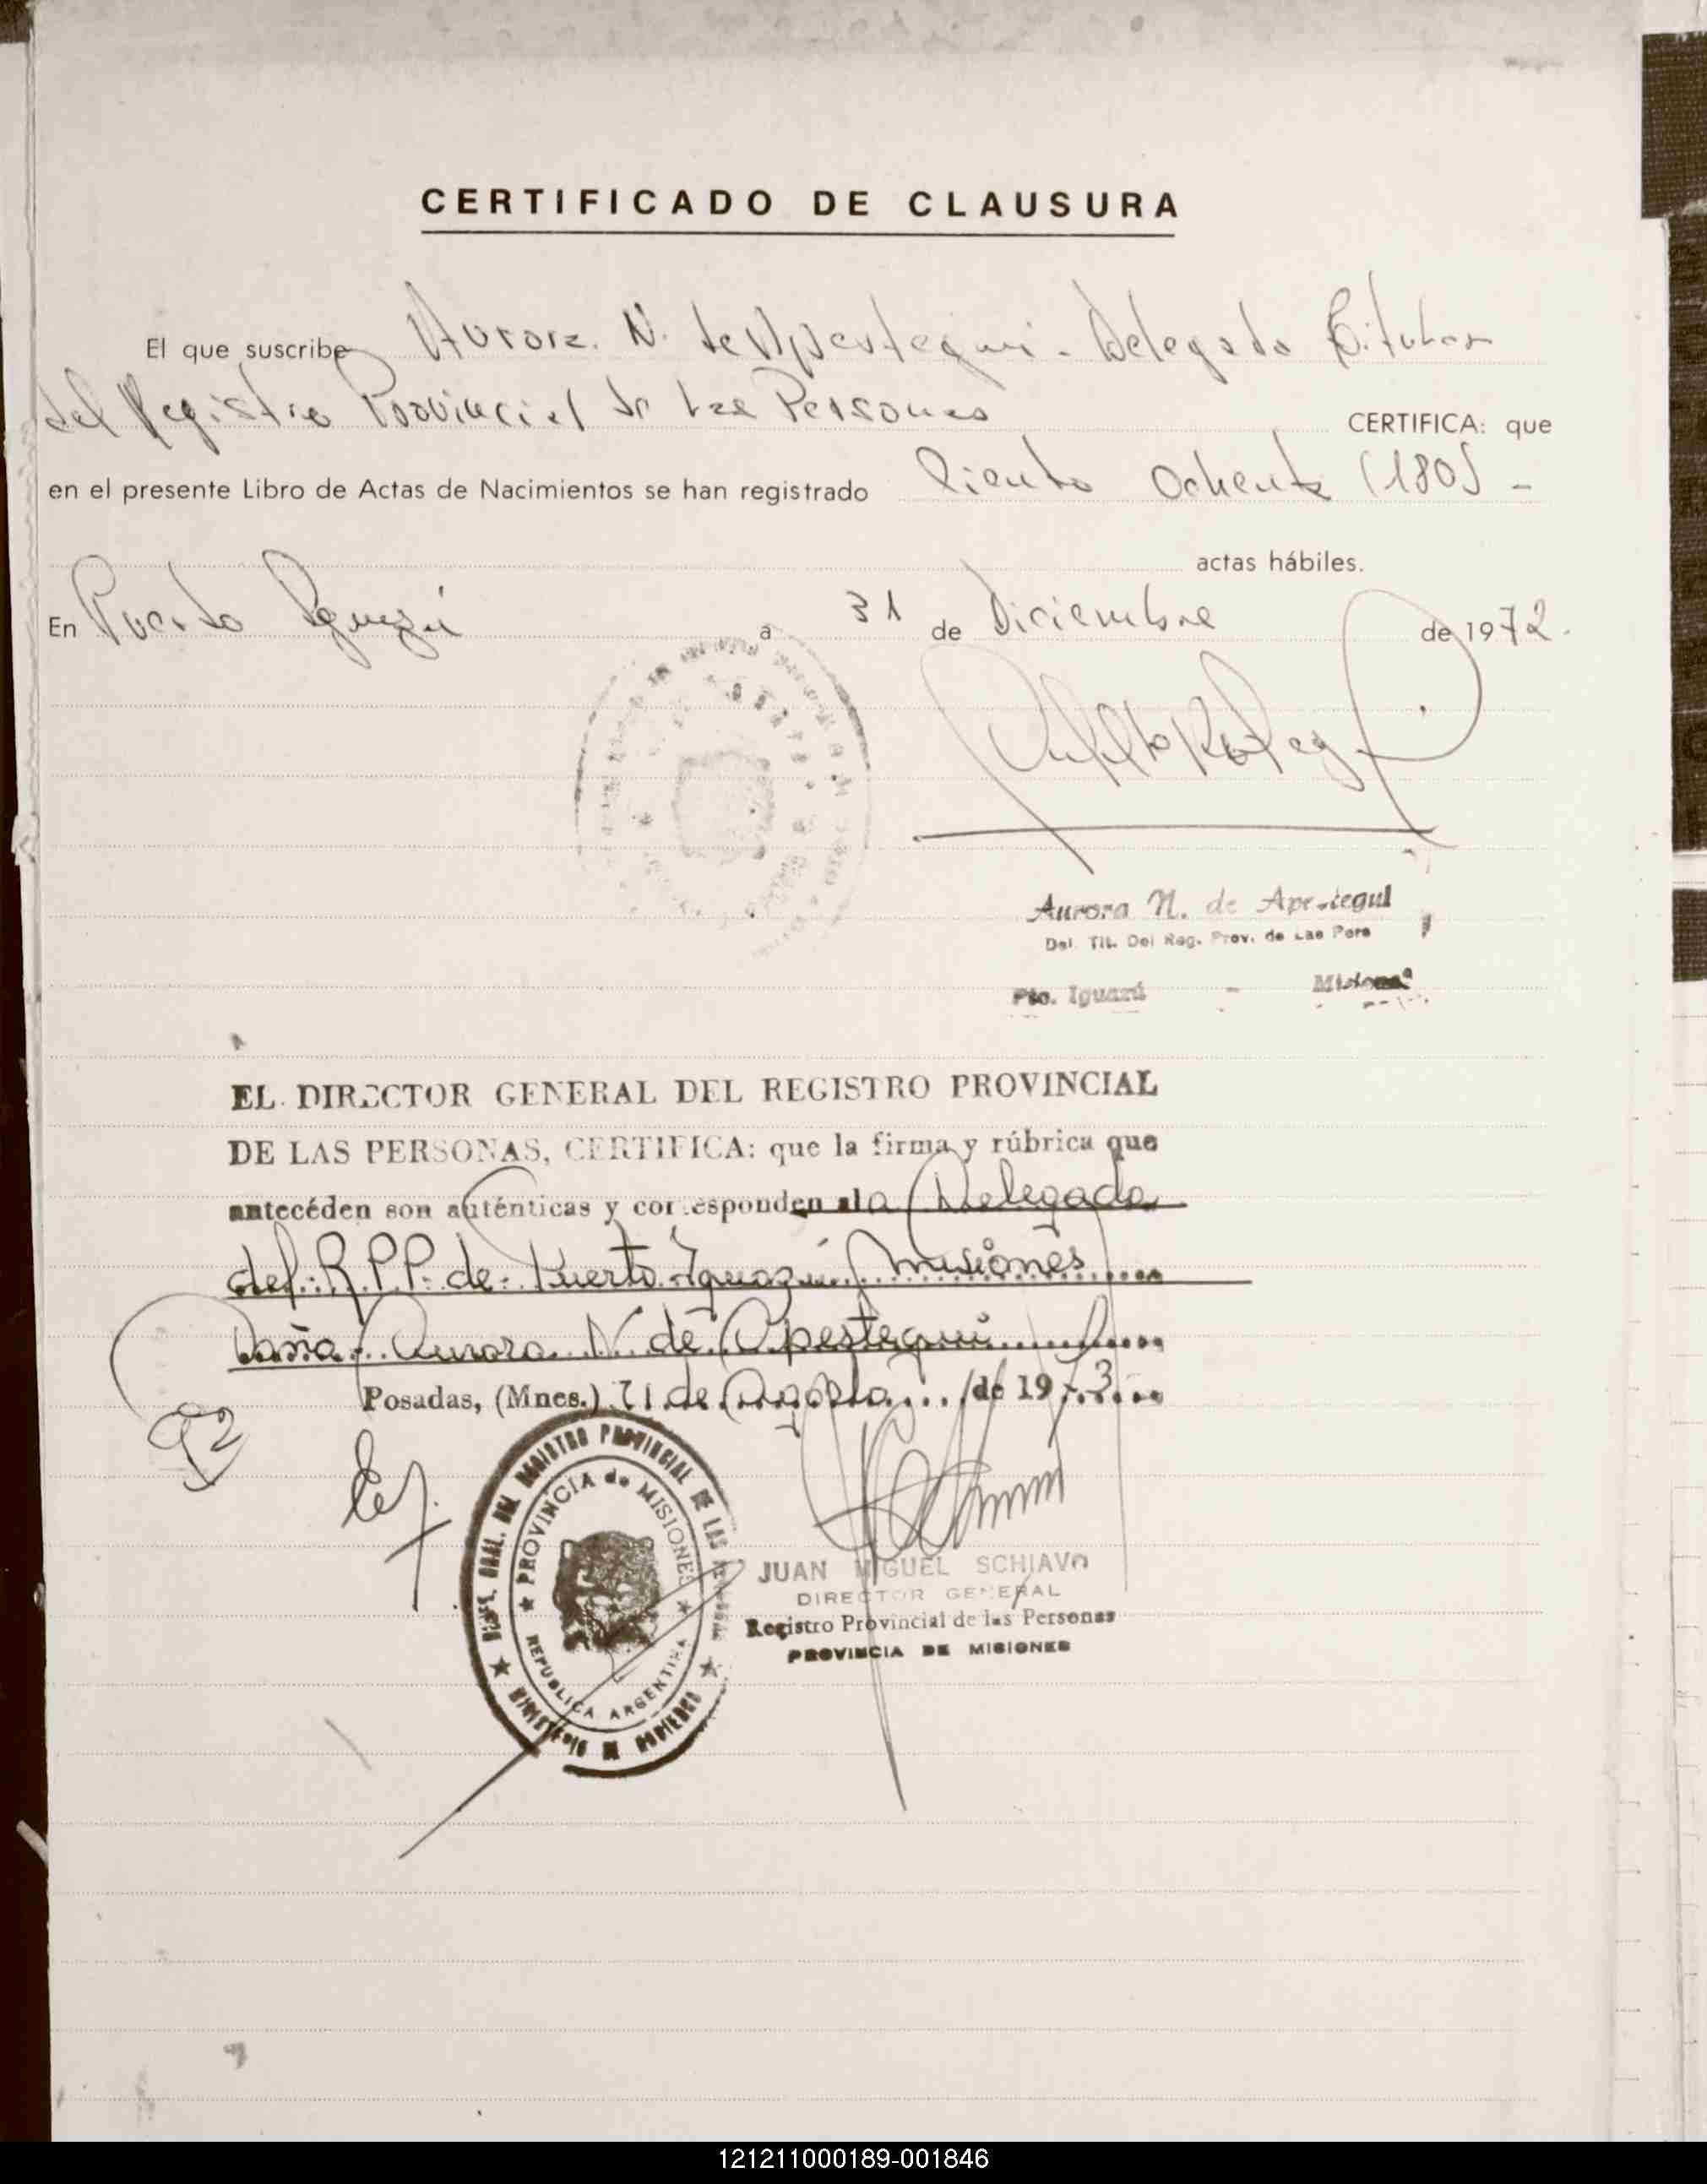 CERTIFICADO DE CLAUSURA
El que suscribe Aurora N. de Apestegui - Delegada Titular
del Registro Provincial de las Personas CERTIFICA: que
en el presente Libro de Actas de Nacimientos se han registrado Ciento Ochenta (180) -
actas hábiles.
En Puerto Iguazú a 31 de Diciembre de 1972.
Aurora N. de Apestegui
Del. Tit. Del Reg. Prov. de Las Pers
Pto. Iguazú - Misiones
EL DIRECTOR GENERAL DEL REGISTRO PROVINCIAL
DE LAS PERSONAS, CERTIFICA: que la firma y rúbrica que
antecéden son auténticas y corresponden al a Delegada
del R.P.P. de Puerto Iguazú, Misiones
Doña Aurora N. de Apestegui
Posadas, (Mnes.) 21 de Agosto de 1973
DIR. GRAL. DEL REGISTRO PROVINCIAL DE LAS PERSONAS
PROVINCIA de MISIONES
REPUBLICA ARGENTINA
MINISTERIO DE GOBIERNO
JUAN MIGUEL SCHIAVO
DIRECTOR GENERAL
Registro Provincial de las Personas
PROVINCIA DE MISIONES
121211000189-001846